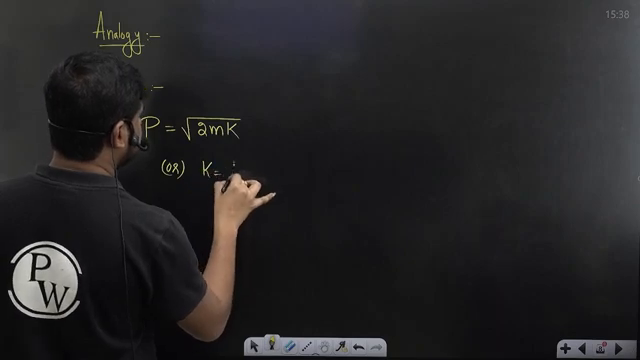 15:38
Analogy :-
:-
P = √2mK
(OR) K =
PW